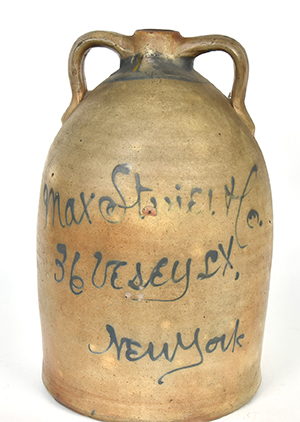 Max Stiner & Co.
36 VESEY St,
New York